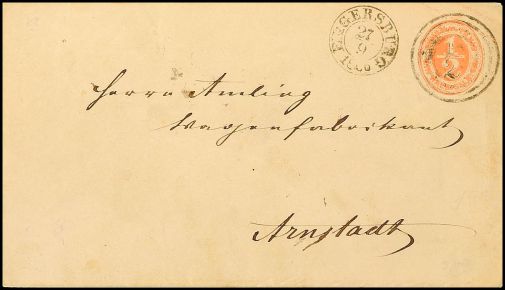 ELGERSBURG
27
9
1866
1/2
Herrn Amling
Wagenfabrikant
Arnstadt